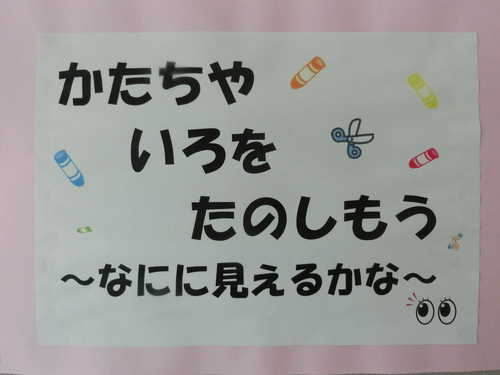 かたちや
いろを
たのしもう
～なにに見えるかな～